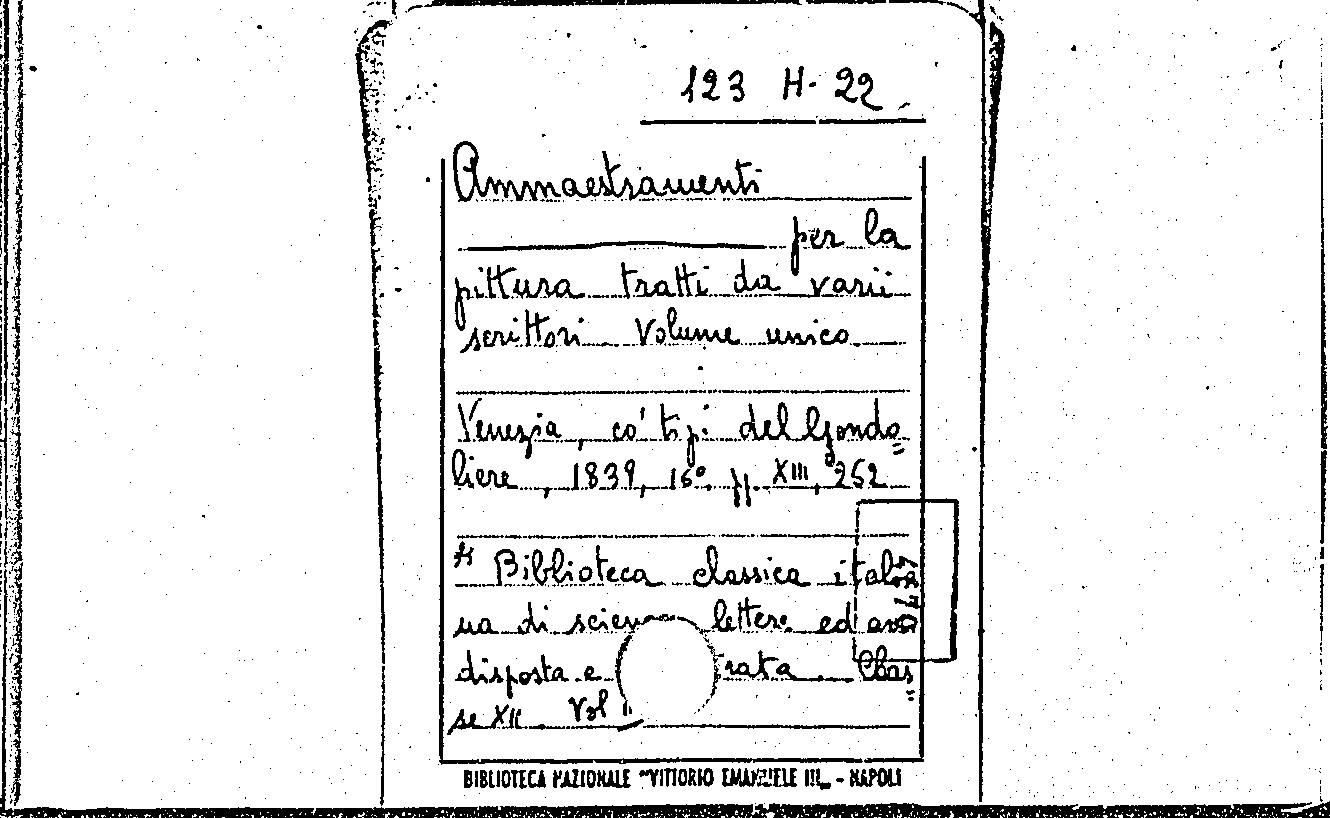 123 H. 22
Ammaestramenti
per la
pittura tratti da varii
scrittori. Volume unico.
Venezia, co' tipi del Gondo=
liere, 1839, 16° pp. XIII, 252
Biblioteca classica italia
na di scienze lettere ed arti
disposta e rata. Clas=
se XII. Vol II
BIBLIOTECA NAZIONALE "VITTORIO EMANUELE III„ - NAPOLI